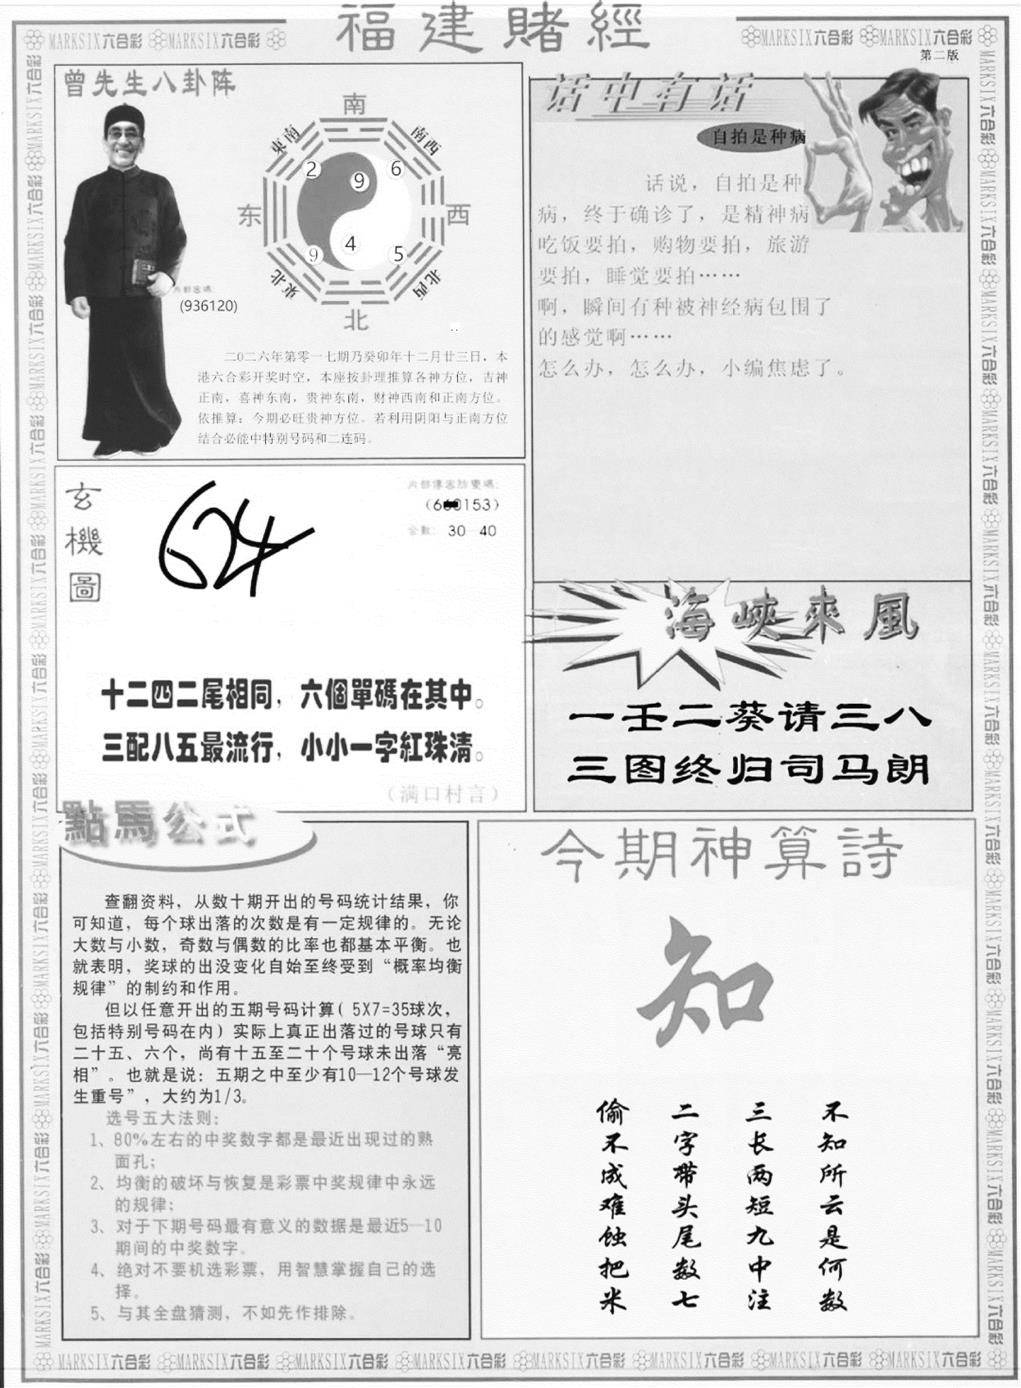 福建賭經
MARKSIX六合彩 MARKSIX六合彩
MARKSIX六合彩 MARKSIX六合彩
第二版
曾先生八卦阵
南
東南
南西
东
西
東北
北西
北
2
9
6
9
4
5
(936120)
二0二六年第零一七期乃癸卯年十二月廿三日，本
港六合彩开奖时空，本座按卦理推算各神方位，吉神
正南，喜神东南，贵神东南，财神西南和正南方位。
依推算：今期必旺贵神方位。若利用阴阳与正南方位
结合必能中特别号码和二连码。
话中有话
自拍是种病
话说，自拍是种
病，终于确诊了，是精神病
吃饭要拍，购物要拍，旅游
要拍，睡觉要拍……
啊，瞬间有种被神经病包围了
的感觉啊……
怎么办，怎么办，小编焦虑了。
玄機圖
624
30—40
十二四二尾相同，六個單碼在其中。
三配八五最流行，小小一字紅珠清。
（满口村言）
海峽來風
一壬二葵请三八
三图终归司马朗
點馬公式
查翻资料，从数十期开出的号码统计结果，你
可知道，每个球出落的次数是有一定规律的。无论
大数与小数，奇数与偶数的比率也都基本平衡。也
就表明，奖球的出没变化自始至终受到“概率均衡
规律”的制约和作用。
但以任意开出的五期号码计算(5X7=35球次，
包括特别号码在内)实际上真正出落过的号球只有
二十五、六个，尚有十五至二十个号球未出落“亮
相”。也就是说：五期之中至少有10—12个号球发
生重号”，大约为1/3。
选号五大法则：
1、80%左右的中奖数字都是最近出现过的熟
面孔；
2、均衡的破坏与恢复是彩票中奖规律中永远
的规律；
3、对于下期号码最有意义的数据是最近5—10
期间的中奖数字。
4、绝对不要机选彩票，用智慧掌握自己的选
择。
5、与其全盘猜测，不如先作排除。
今期神算詩
知
不知所云是何数
三长两短九中注
二字带头尾数七
偷不成难蚀把米
MARKSIX六合彩 MARKSIX六合彩 MARKSIX六合彩 MARKSIX六合彩 MARKSIX六合彩 MARKSIX六合彩 MARKSIX六合彩 MARKSIX六合彩